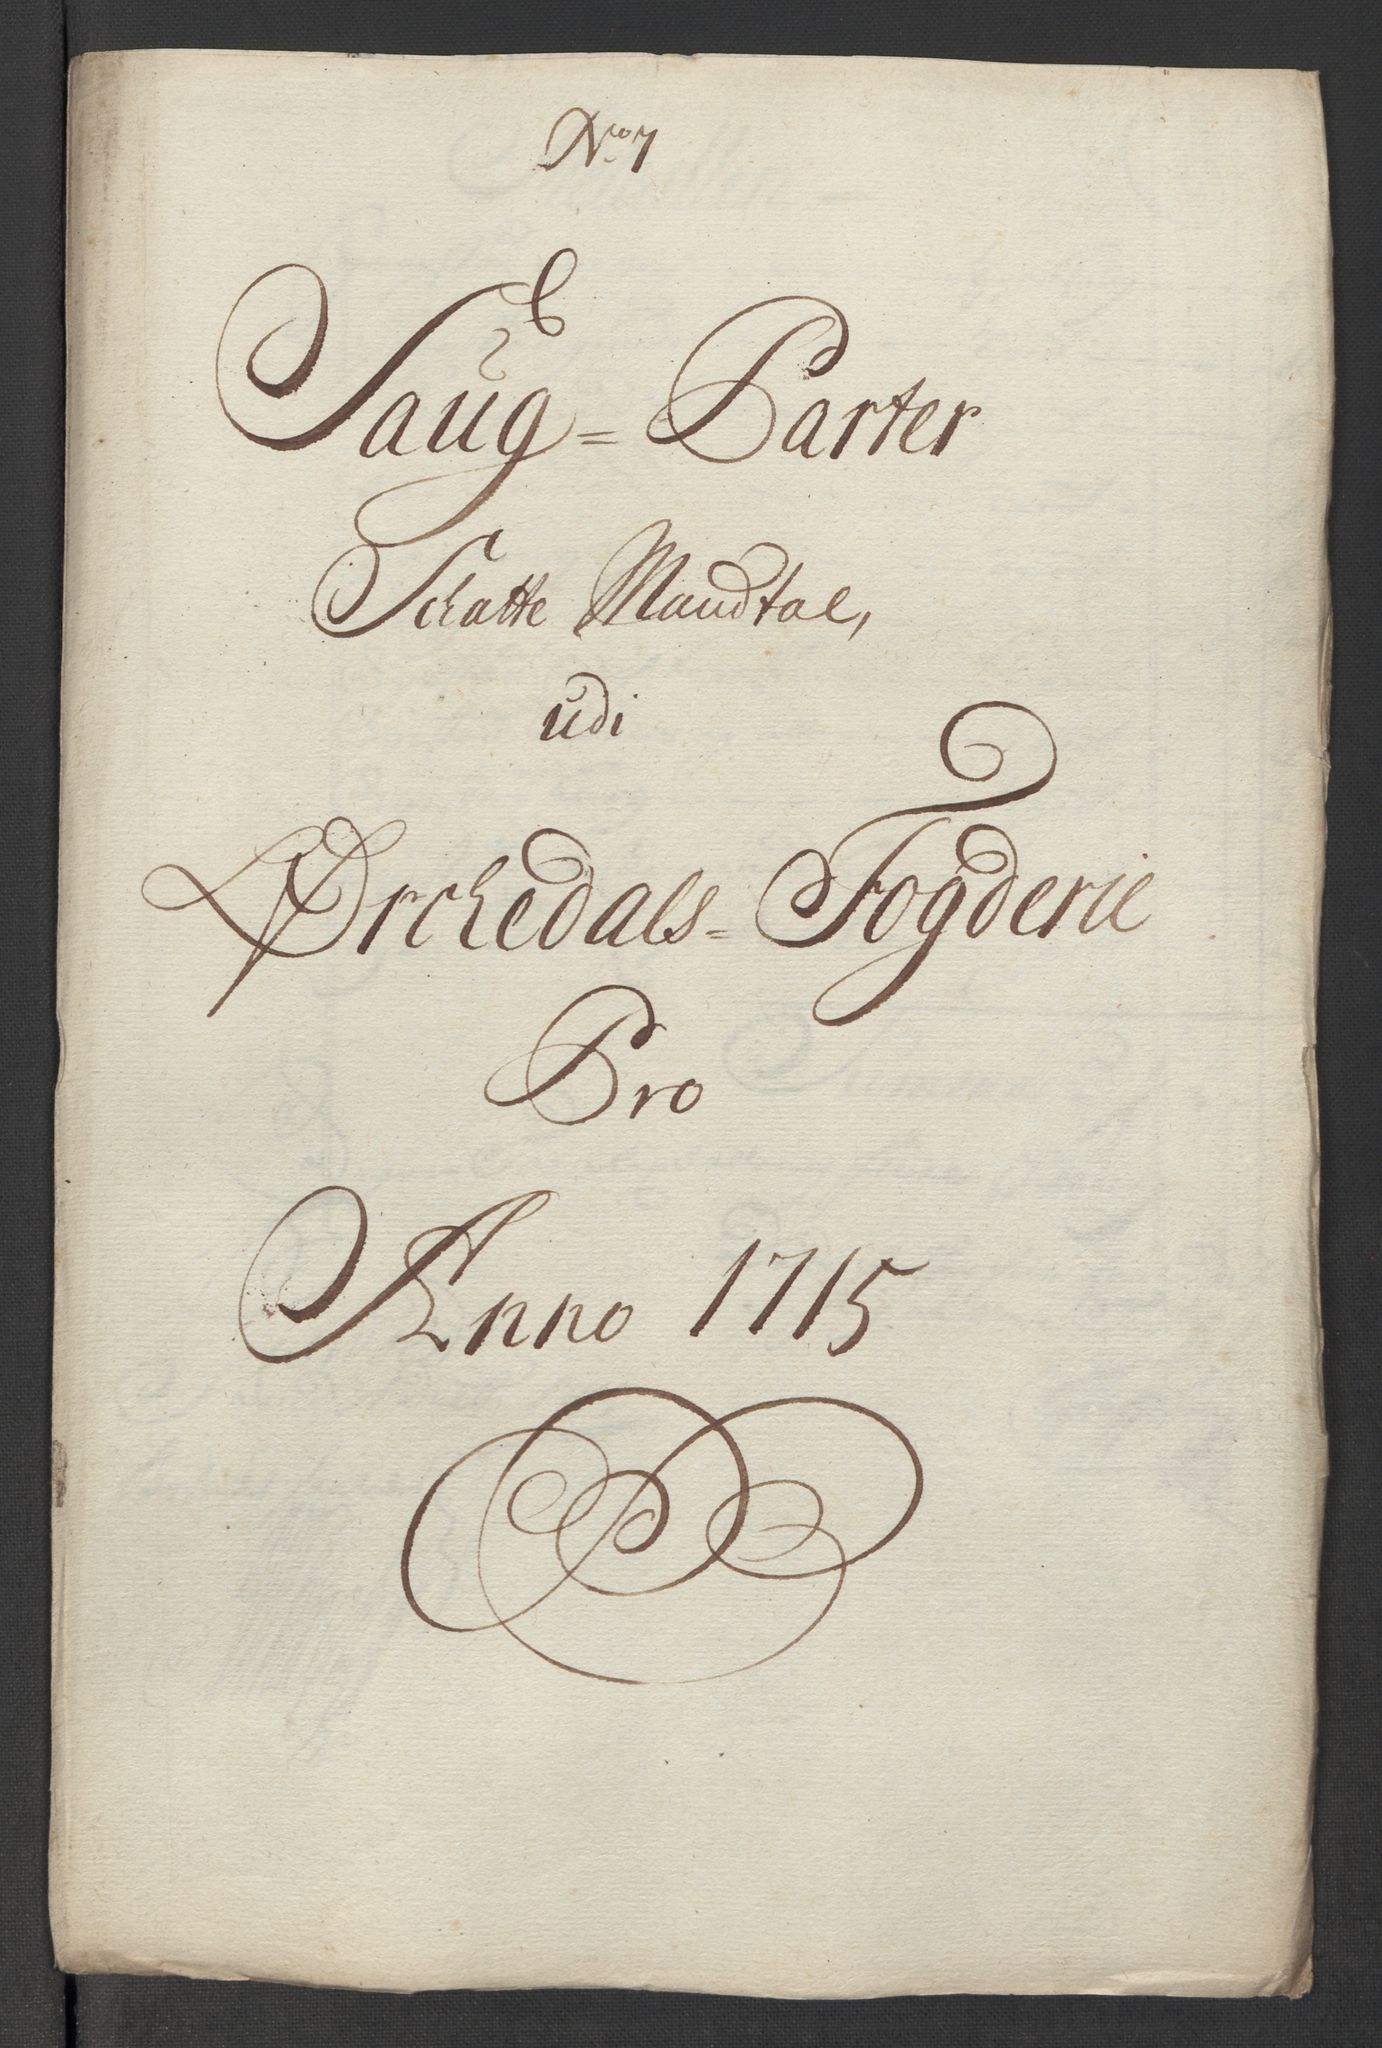 No 7
Saug = Parter
Schatte Mandtal,
udi
Ørchedals = Fogderie
Pro
Anno 1715